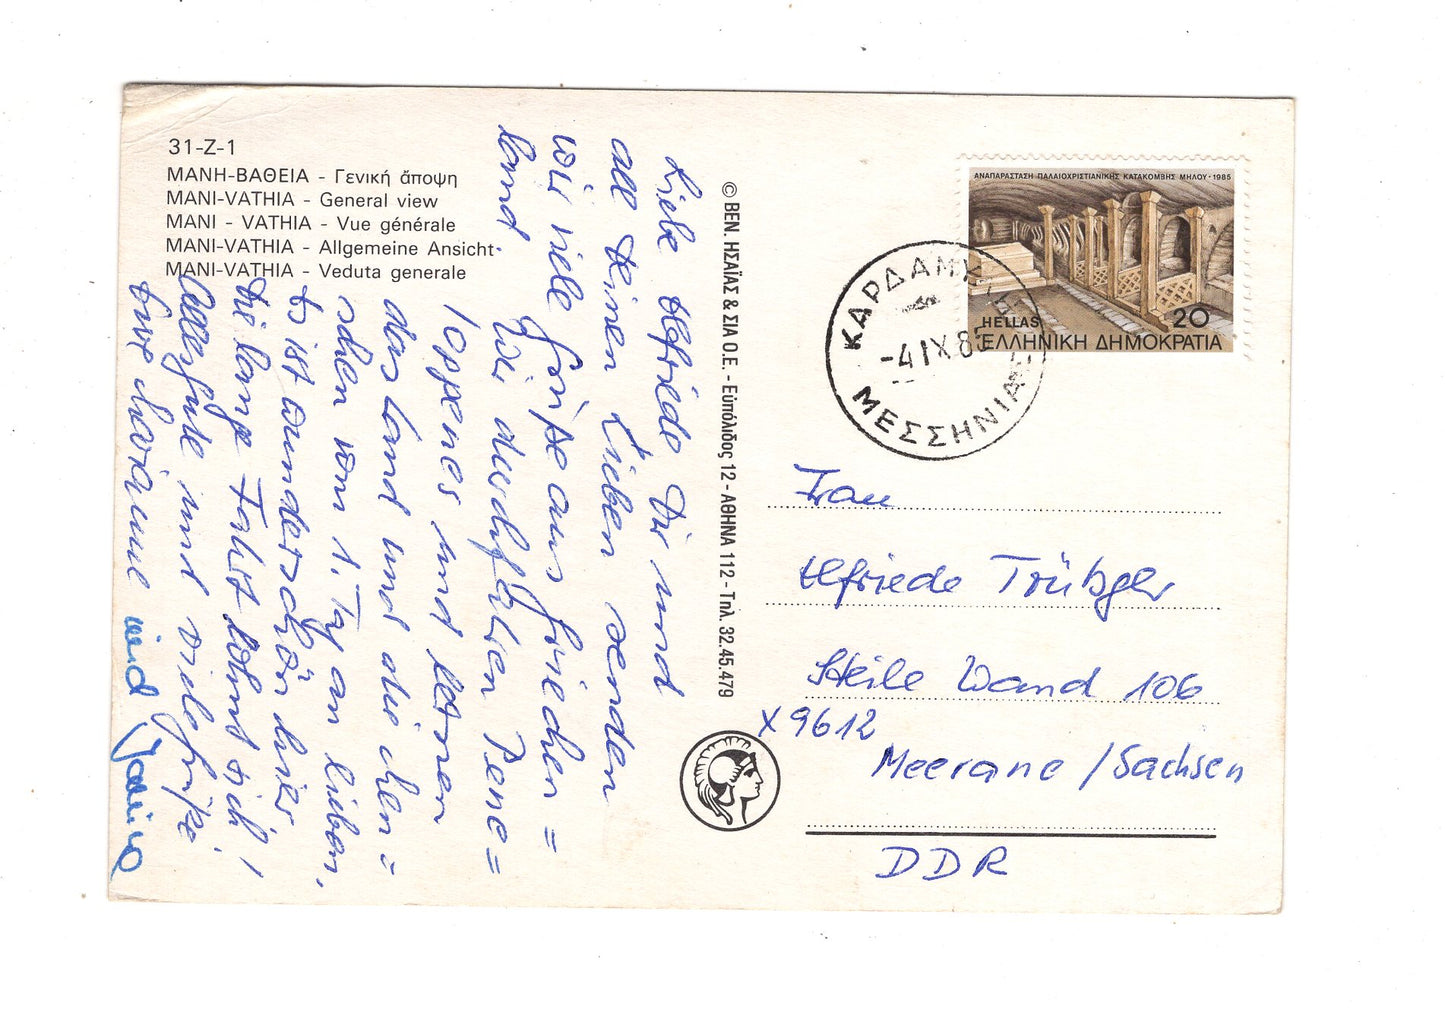 31-Z-1
ΜΑΝΗ-ΒΑΘΕΙΑ - Γενική ἄποψη
MANI-VATHIA - General view
MANI - VATHIA - Vue générale
MANI-VATHIA - Allgemeine Ansicht
MANI-VATHIA - Veduta generale
Liebe Elfriede Dir und
all Deinen Lieben senden
wir viele Grüße aus Griechen=
land. Wir durchfahren Pene=
loppenes und lernen
das Land und die Men=
schen vom 1. Tag an lieben,
Es ist wunderschön hier
Die lange Fahrt lohnt sich!
Alles Gute und viele Grüße.
Eure Marianne und
© ΒΕΝ. ΗΣΑΪΑΣ & ΣΙΑ Ο.Ε. - Εὐπόλιδος 12 - ΑΘΗΝΑ 112 - Τηλ. 32.45.479
ΑΝΑΠΑΡΑΣΤΑΣΗ ΠΑΛΑΙΟΧΡΙΣΤΙΑΝΙΚΗΣ ΚΑΤΑΚΟΜΒΗΣ ΜΗΛΟΥ·1985
HELLAS 20
ΕΛΛΗΝΙΚΗ ΔΗΜΟΚΡΑΤΙΑ
-4 IX 85
ΜΕΣΣΗΝΙΑΣ
Frau
Elfriede Trübger
Steile Wand 106
X 9612
Meerane / Sachsen
DDR